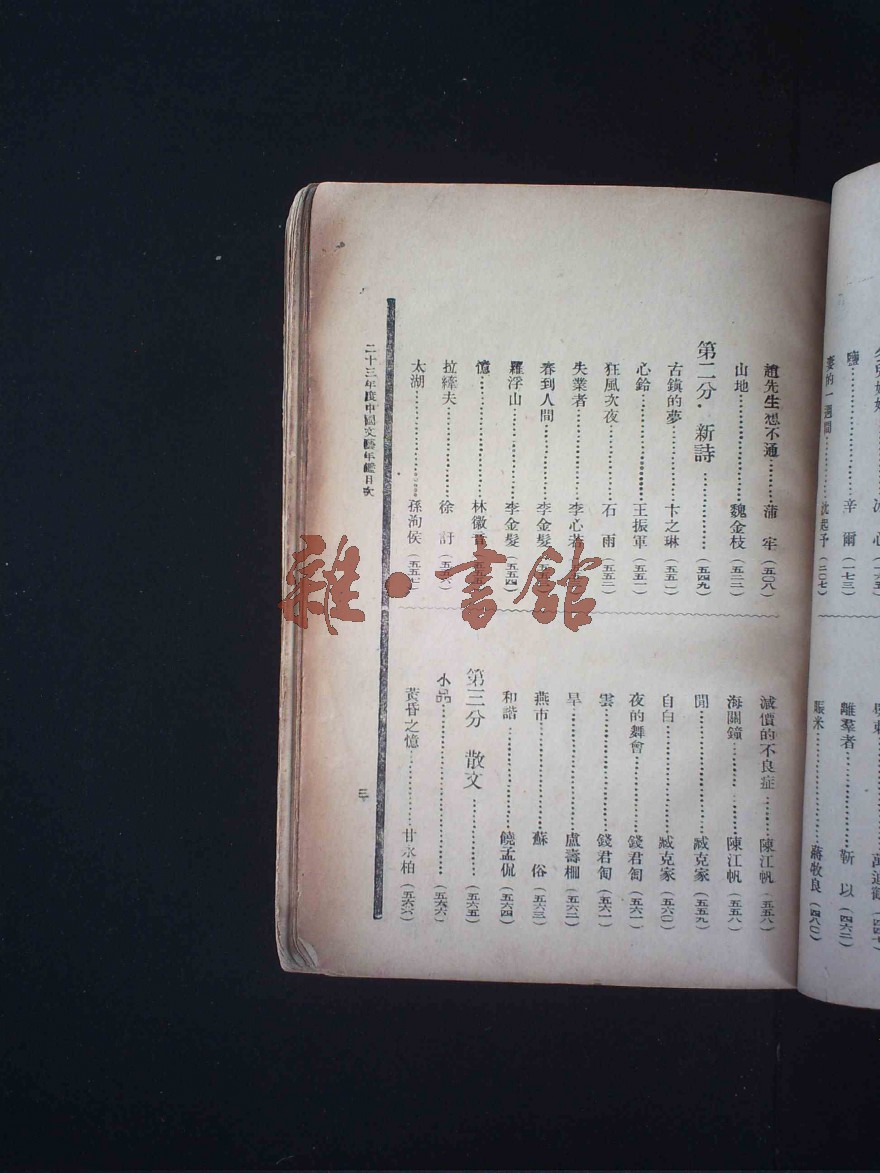 鹽……辛爾(一七三)
妻的一週間……沈起予(二〇七)
離羣者……靳以(四六二)
賑米……蔣牧良(四八〇)
趙先生想不通……蒲牢(五〇八)
山地……魏金枝(五二二)
第二分·新詩……(五四九)
古鎮的夢……卞之琳(五五一)
心鈴……王振軍(五五一)
狂風次夜……石雨(五五二)
失業者……李心若
春到人間……李金髮
羅浮山……李金髮(五五四)
憶……林徽音
拉縴夫……徐訏
太湖……孫洵侯(五五七)
減價的不良症……陳江帆(五五八)
海關鐘……陳江帆(五五八)
閒……臧克家(五五九)
自白……臧克家(五六〇)
夜的舞會……錢君匋(五六一)
雲……錢君匋(五六一)
旱……盧壽枬(五六二)
燕市……蘇俗(五六三)
和諧……饒孟侃(五六四)
第三分 散文……(五六五)
小品……(五六六)
黃昏之憶……甘永柏(五六六)
二十三年度中國文藝年鑑目次
三
雜·書館